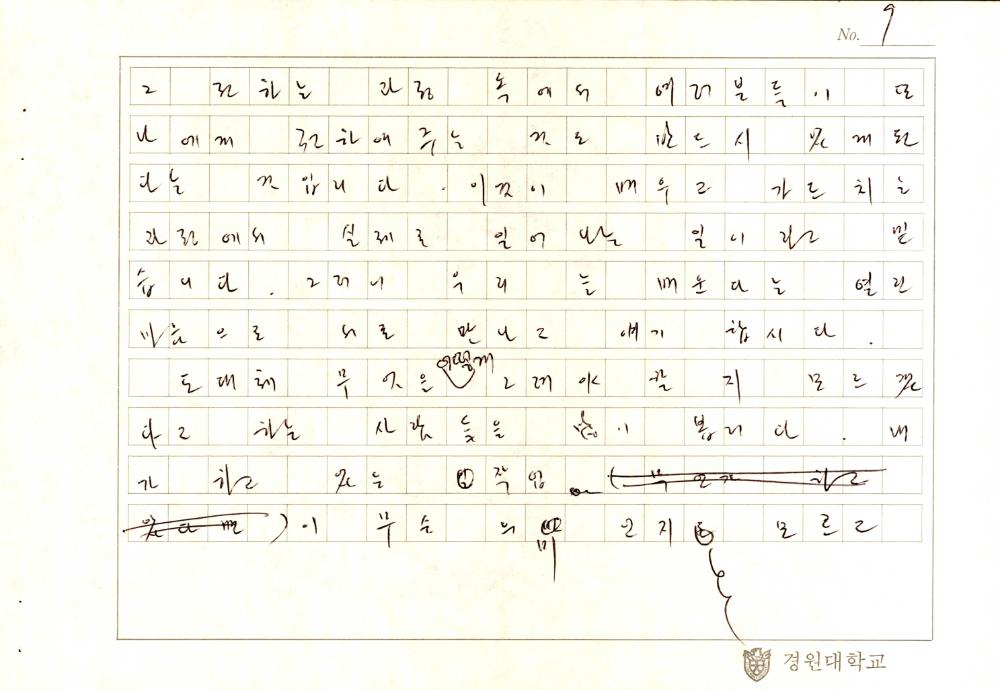 No. 9
그 전하는 과정 속에서 여러분들이 또
나에게 전하여 주는 것도 반드시 있게 된
다는 것입니다. 이것이 배우고 가르치는
과정에서 실제로 일어나는 일이라고 믿
습니다. 그러니 우리는 배운다는 열린
마음으로 서로 만나고 얘기 합시다.
도대체 무엇을 어떻게 그려야 할지 모르겠
다고 하는 사람들을 많이 봅니다. 내
가 하고 있는 작업
이 무슨 의미 인지 모르고
경원대학교